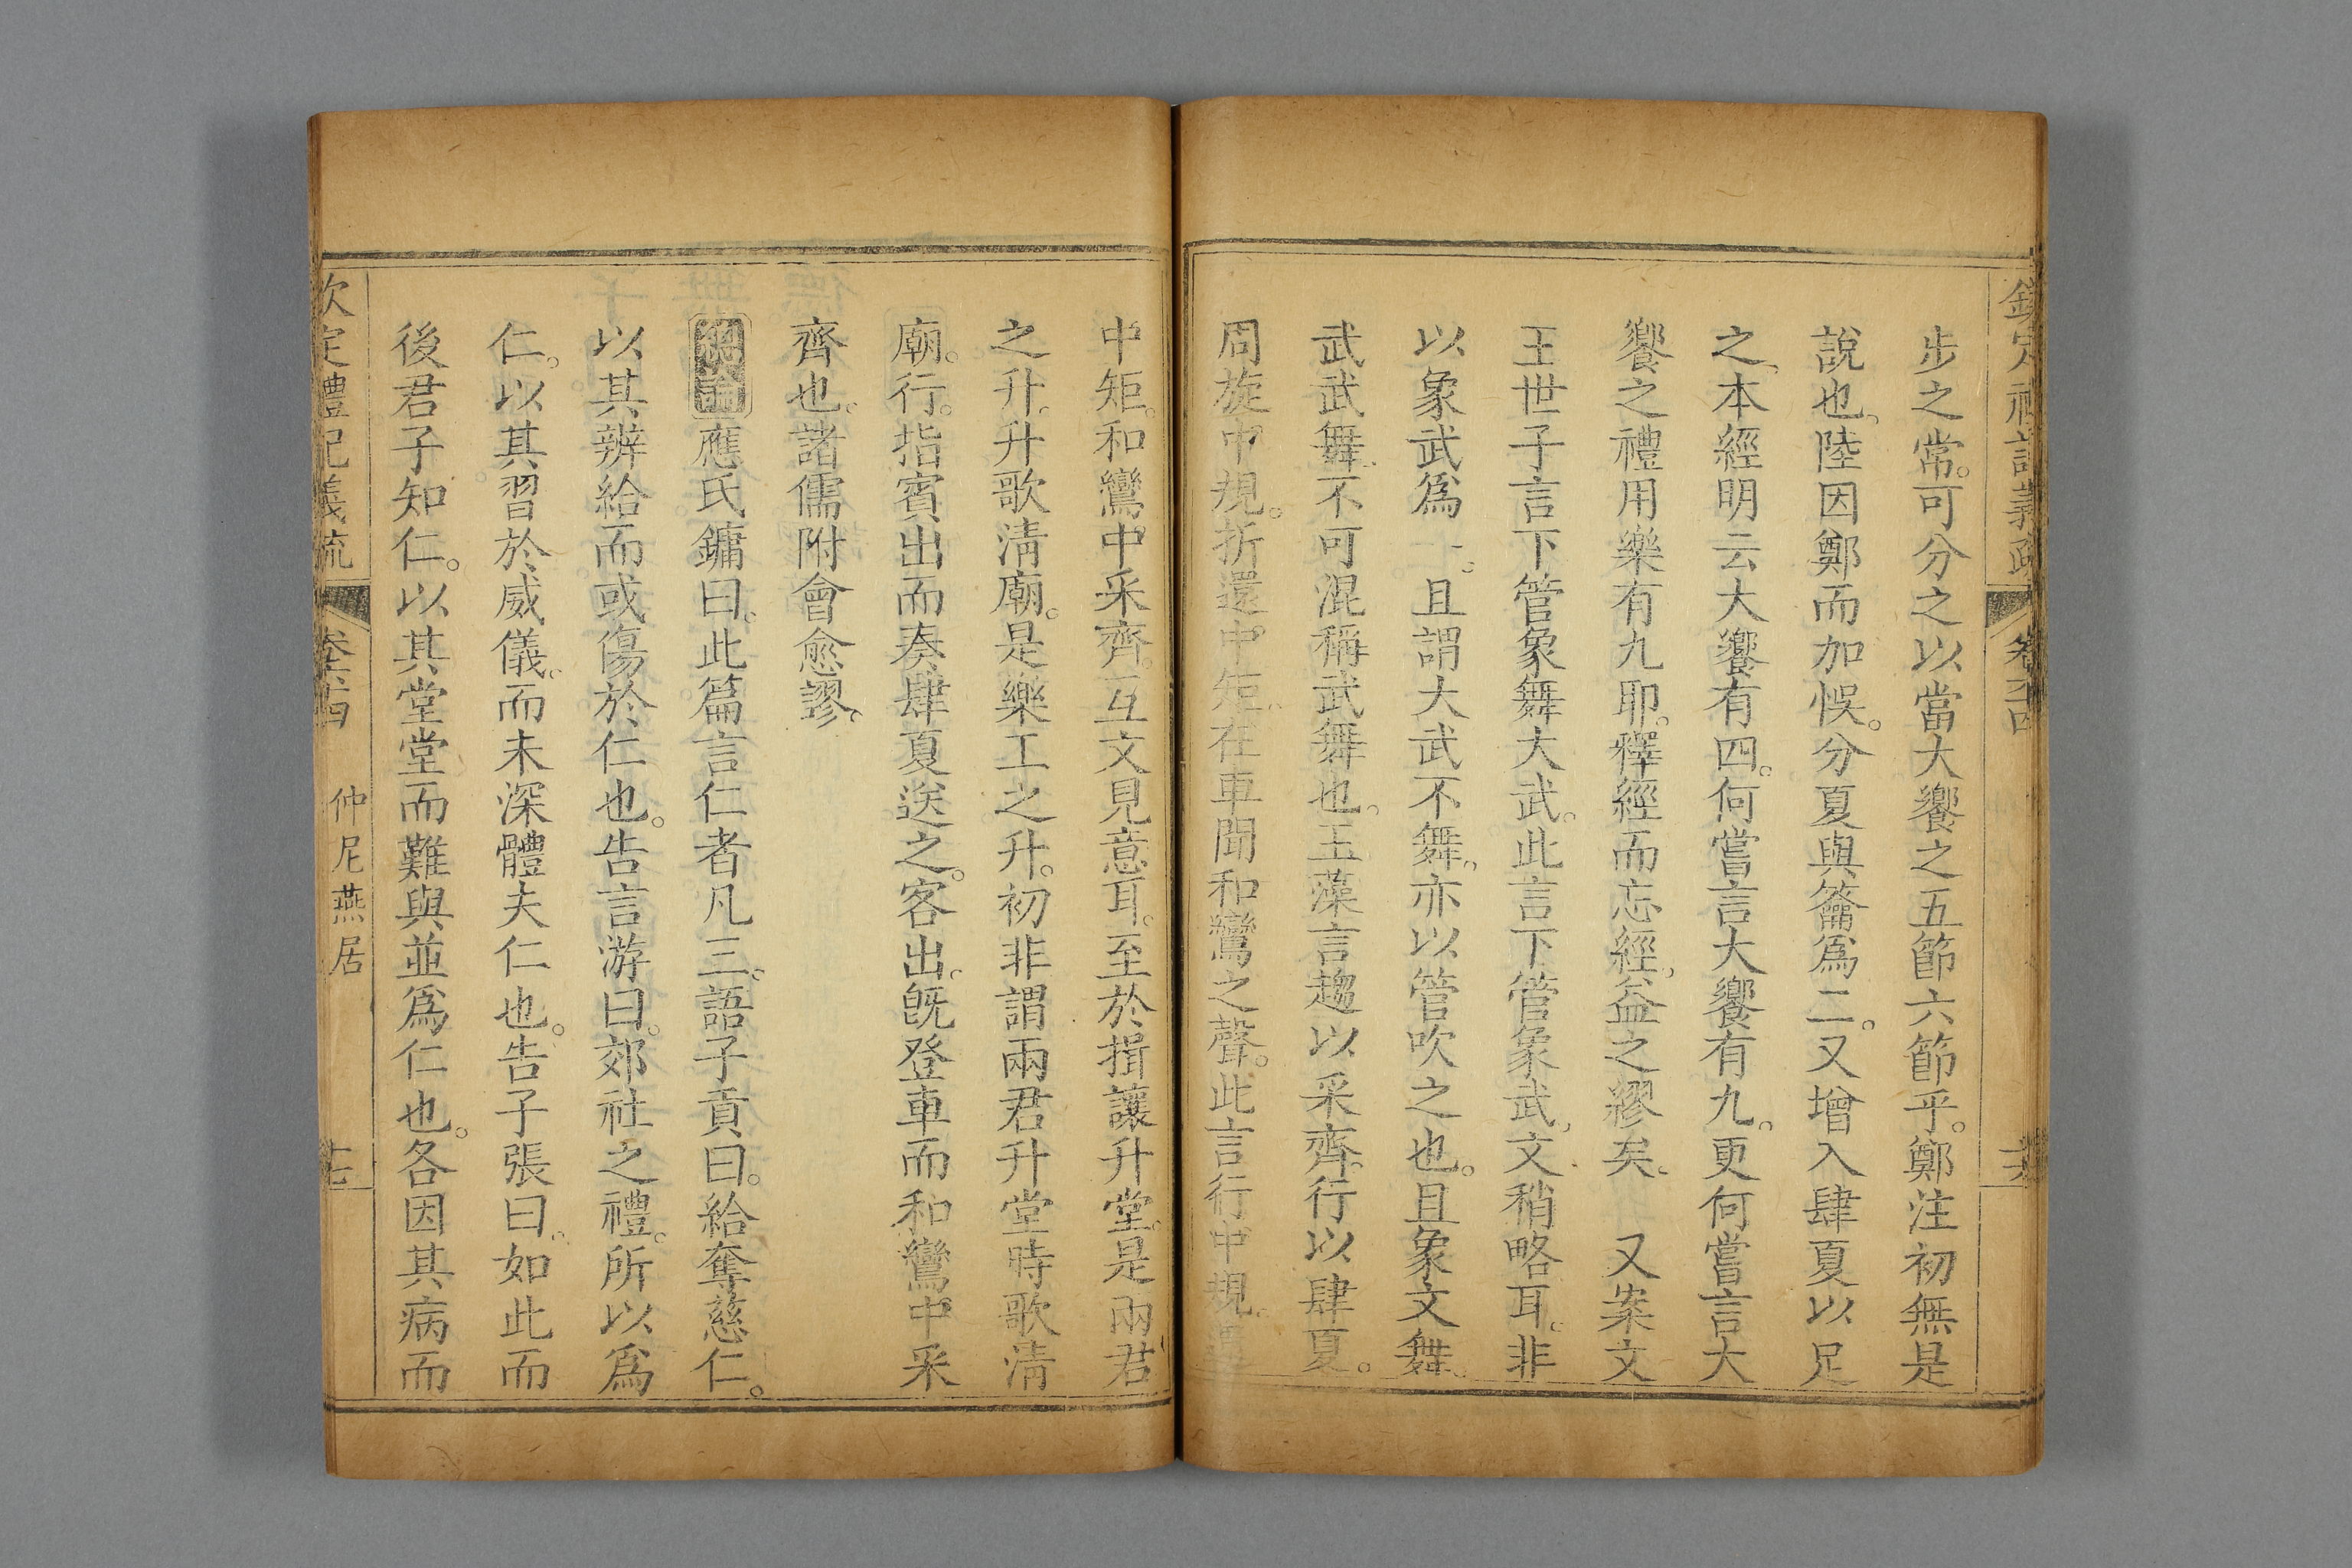 欽定禮記義疏 卷六十四
步之常。可分之以當大饗之五節六節乎。鄭注初無是
說也。陸因鄭而加悞。分夏與籥爲二。又增入肆夏以足
之、本經明云大饗有四。何嘗言大饗有九。更何嘗言大
饗之禮用樂有九耶。釋經而忘經、益之繆矣。 又案文
王世子言下管象舞大武。此言下管象武、文稍略耳。非
以象武爲一。且謂大武不舞、亦以管吹之也。且象文舞。
武武舞、不可混稱武舞也。玉藻言趨以采齊。行以肆夏。
周旋中規。折還中矩。在車聞和鸞之聲。此言行中規。還
中矩。和鸞中采齊。互文見意耳。至於揖讓升堂。是兩君
之升。升歌淸廟。是樂工之升。初非謂兩君升堂時歌淸
廟。行。指賓出而奏肆夏送之。客出。旣登車而和鸞中采
齊也。諸儒附會愈謬。
總論應氏鏞曰。此篇言仁者凡三。語子貢曰。給奪慈仁。
以其辨給而或傷於仁也。告言游曰。郊社之禮。所以爲
仁。以其習於威儀。而未深體夫仁也。告子張曰。如此而
後君子知仁。以其堂堂而難與並爲仁也。各因其病而
欽定禮記義疏 卷六十四 仲尼燕居